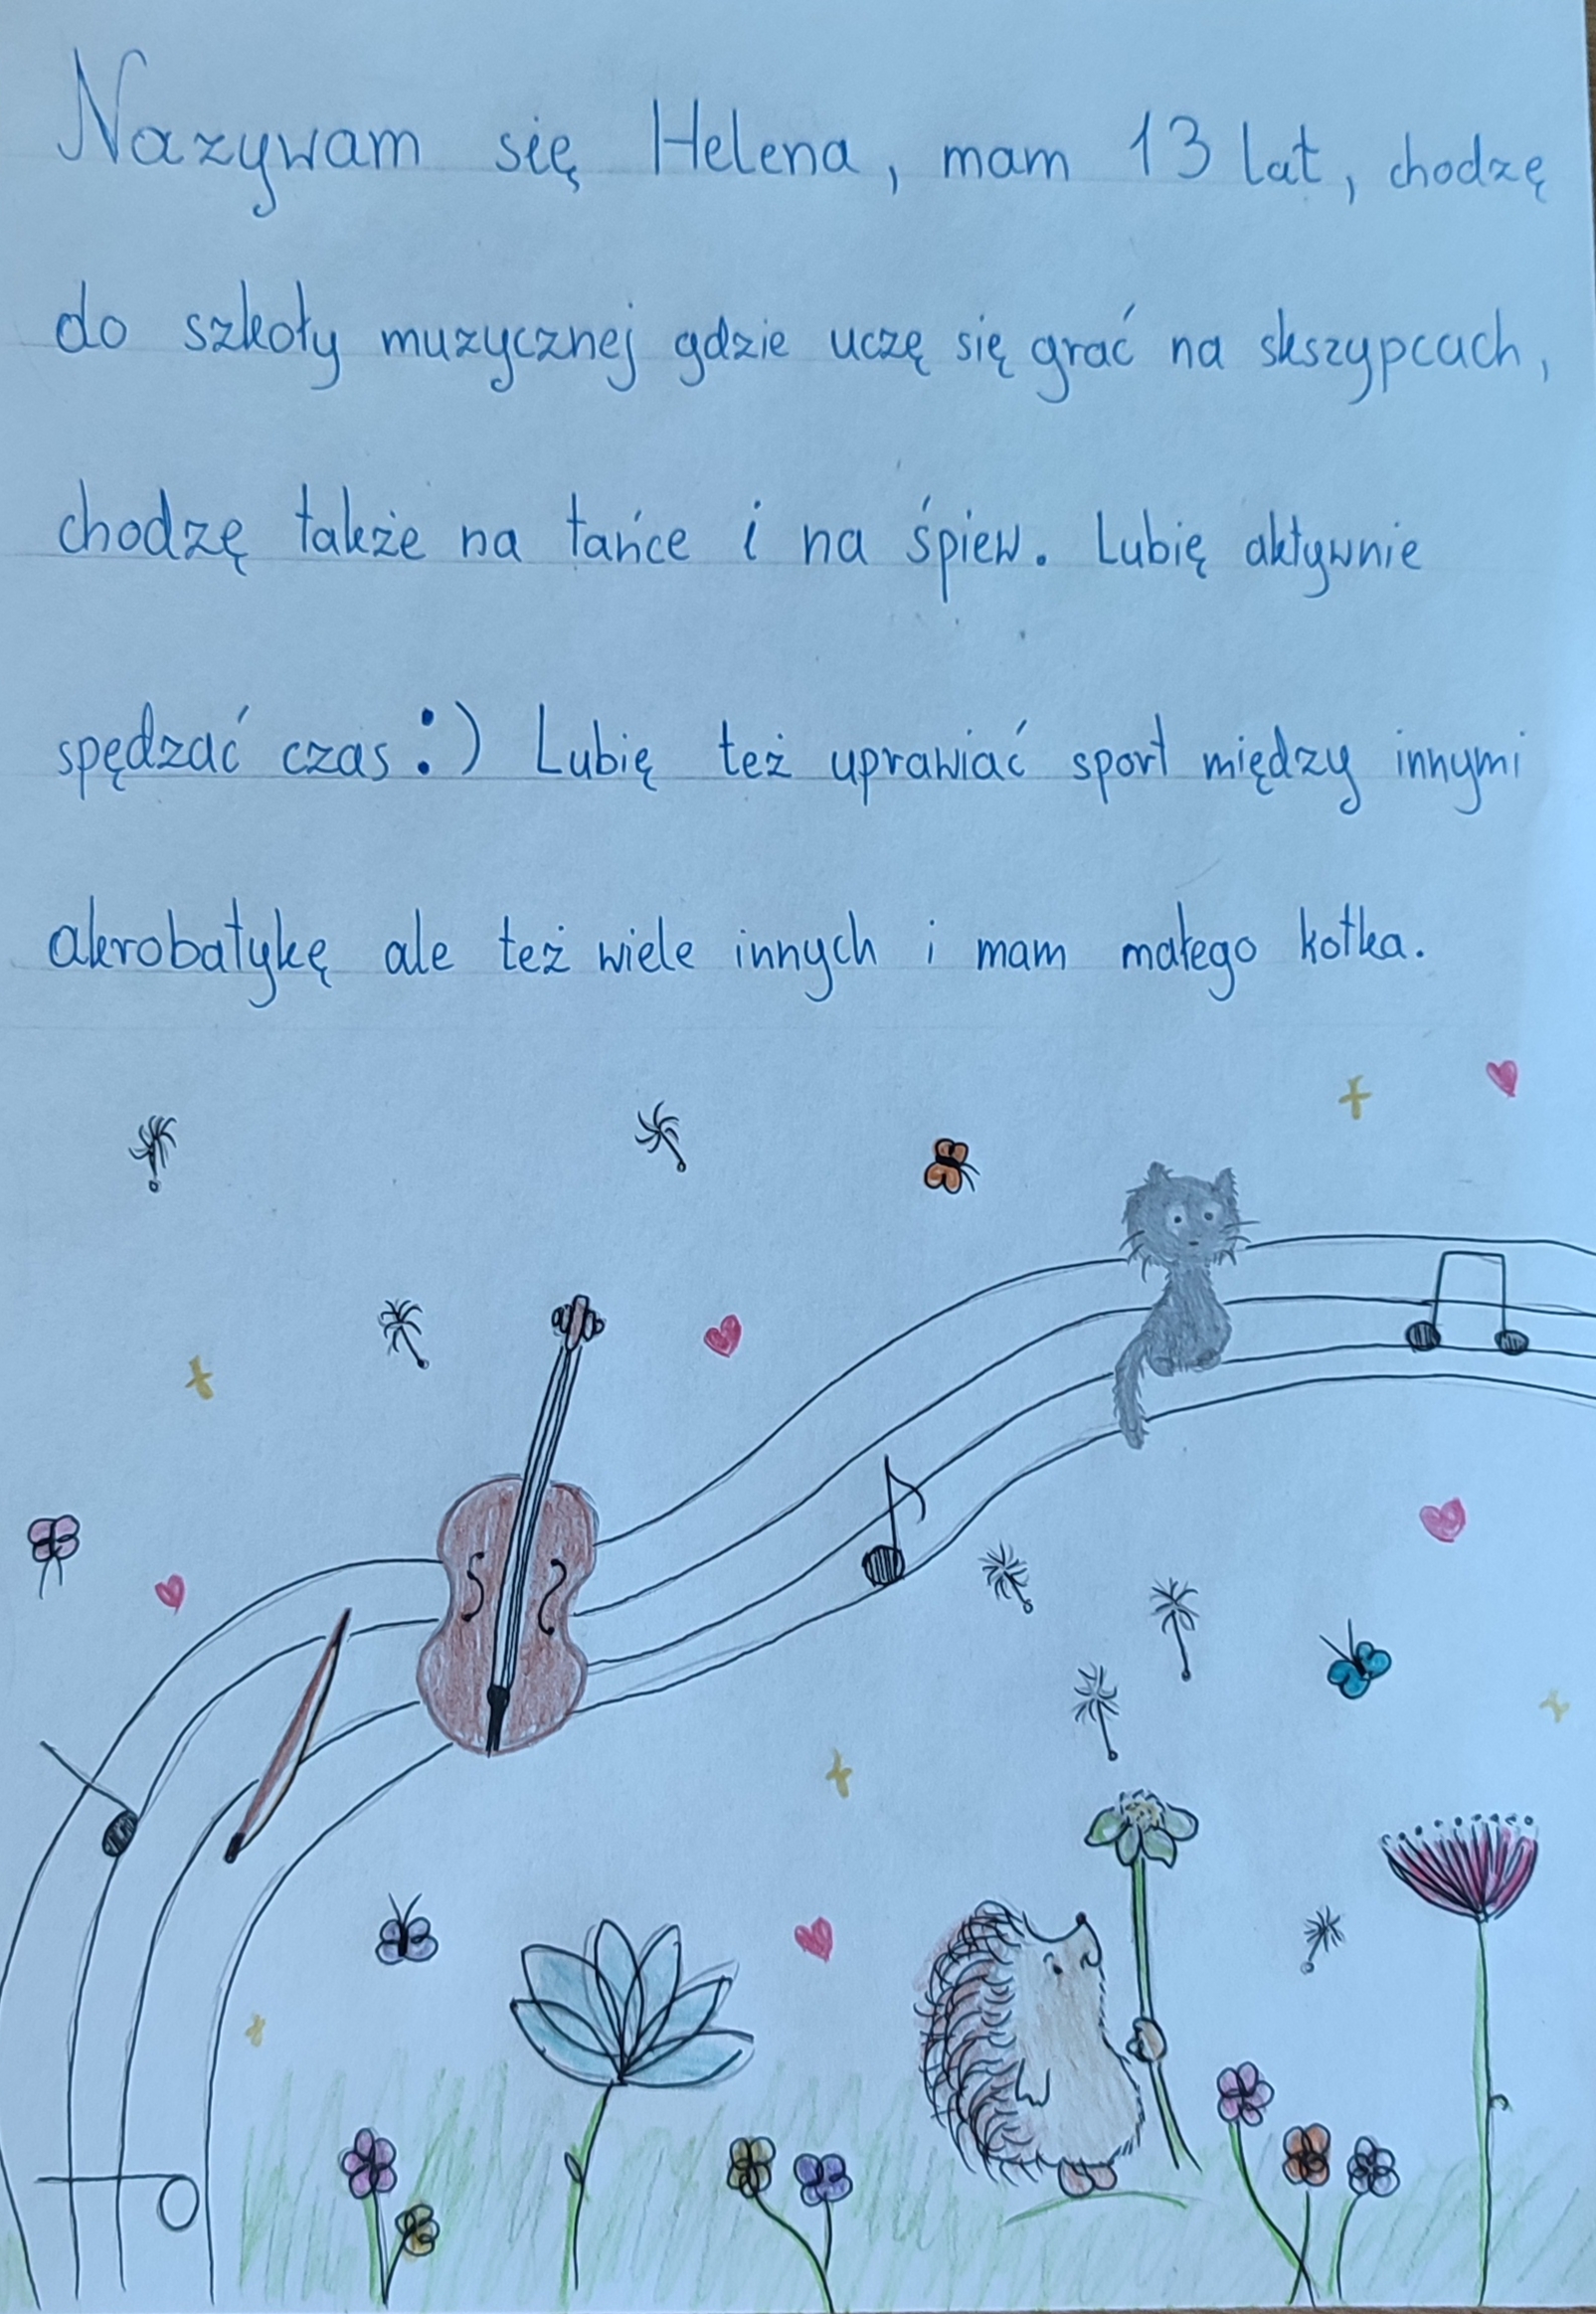 Nazywam się Helena, mam 13 lat, chodzę
do szkoły muzycznej gdzie uczę się grać na skszypcach,
chodzę także na tańce i na śpiew. Lubię aktywnie
spędzać czas :) Lubię też uprawiać sport między innymi
akrobatykę ale też wiele innych i mam małego kotka.